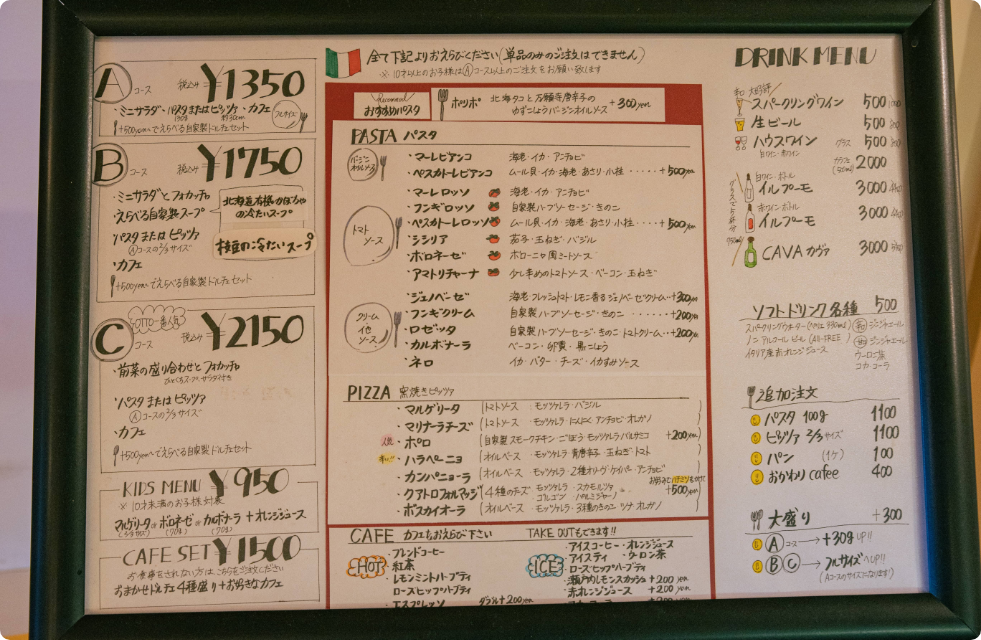 A コース 税込み ¥1350
・ミニサラダ・パスタまたはピッツァ・カフェ
フルサイズ
+500yenでえらべる自家製ドルチェセット
B コース 税込み ¥1750
・ミニサラダとフォカッチャ
・えらべる自家製スープ
北海道本格かぼちゃの冷たいスープ
枝豆の冷たいスープ
・パスタまたはピッツァ
Aコースの2/3サイズ
・カフェ
+500yenでえらべる自家製ドルチェセット
OTTO一番人気
C コース 税込み ¥2150
・前菜の盛り合わせとフォカッチャ
・パスタまたはピッツァ
Aコースの2/3サイズ
・カフェ
+500yenでえらべる自家製ドルチェセット
KIDS MENU ¥950
※10才未満のお子様対象
マルゲリータor ボロネーゼor カルボナーラ + オレンジジュース
CAFE SET ¥1500
お食事をされない方はこちらをご注文ください
おまかせドルチェ4種盛り+お好きなカフェ
全て下記よりおえらびください(単品のみのご注文はできません)
※10才以上のお子様はAコース以上のご注文をお願い致します
Recommend
おすすめパスタ
ポリポ 北海タコと万願寺唐辛子の
ゆずこしょうバージンオイルソース +300yen
PASTA パスタ
バージンオイルソース
・マーレビアンコ 海老・イカ・アンチョビ
・ペスカトーレビアンコ ムール貝・イカ・海老・あさり・小柱 ‥‥‥+500yen
トマトソース
・マーレロッソ 海老・イカ・アンチョビ
・フンギロッソ 自家製ハーブソーセージ・きのこ
・ペスカトーレロッソ ムール貝・イカ・海老・あさり・小柱 ‥‥+500yen
・シシリア 茄子・玉ねぎ・バジル
・ボロネーゼ ボローニャ風ミートソース
・アマトリチャーナ 少し辛めのトマトソース・ベーコン・玉ねぎ
クリーム他ソース
・ジェノベーゼ 海老・フレッシュトマト・レモン香るジェノベーゼクリーム‥+300yen
・フンギクリーム 自家製ハーブソーセージ・きのこ ‥‥‥+200yen
・ロゼッタ 自家製ハーブソーセージ・きのこ トマトクリーム‥+200yen
・カルボナーラ ベーコン・卵黄・黒こしょう
・ネロ イカ・バター・チーズ・イカすみソース
PIZZA 窯焼きピッツァ
・マルゲリータ (トマトソース・モッツァレラ・バジル)
・マリナーラチーズ (トマトソース・モッツァレラ・にんにく・アンチョビ・オレガノ)
人気 ・ポロ (自家製スモークチキン・ごぼう・モッツァレラ・バルサミコ +200yen)
・ハラペーニョ (オイルベース・モッツァレラ・青唐辛子・玉ねぎ・トマト)
・カンパニョーラ (オイルベース・モッツァレラ・2種オリーブ・ケイパー・アンチョビ)
・クアトロフォルマッジ (4種のチーズ・モッツァレラ・スカモルツァ・ゴルゴンゾーラ・パルミジャーノ) +500yen
・ボスカイオーラ (オイルベース・モッツァレラ・3種のきのこ・ツナ・オレガノ)
CAFE カフェもおえらび下さい TAKE OUTもできます!!
HOT
ブレンドコーヒー
紅茶
レモンミントハーブティ
ローズヒップハーブティ
エスプレッソ ダブル+200yen
ICE
アイスコーヒー・オレンジジュース
アイスティ ・ウーロン茶
ローズヒップハーブティ
瀬戸内レモンスカッシュ +200yen
赤オレンジジュース +200yen
DRINK MENU
スパークリングワイン 500
生ビール 500
ハウスワイン グラス 500
白ワイン・赤ワイン
2000
白ワイン・ボトル
イルプーモ 3000
赤ワイン・ボトル
イルプーモ 3000
CAVA カヴァ 3000
ソフトドリンク各種 500
ノンアルコールビール(ALL-FREE)
イタリア産赤オレンジジュース
ジンジャエール
ジンジャエール
ウーロン茶
コカ・コーラ
追加注文
パスタ 100g 1100
ピッツァ 2/3サイズ 1100
パン (1ケ) 100
おかわり cafee 400
大盛り +300
A コース→+30g UP!!
B C →フルサイズへUP!!
(Aコースのサイズになります)